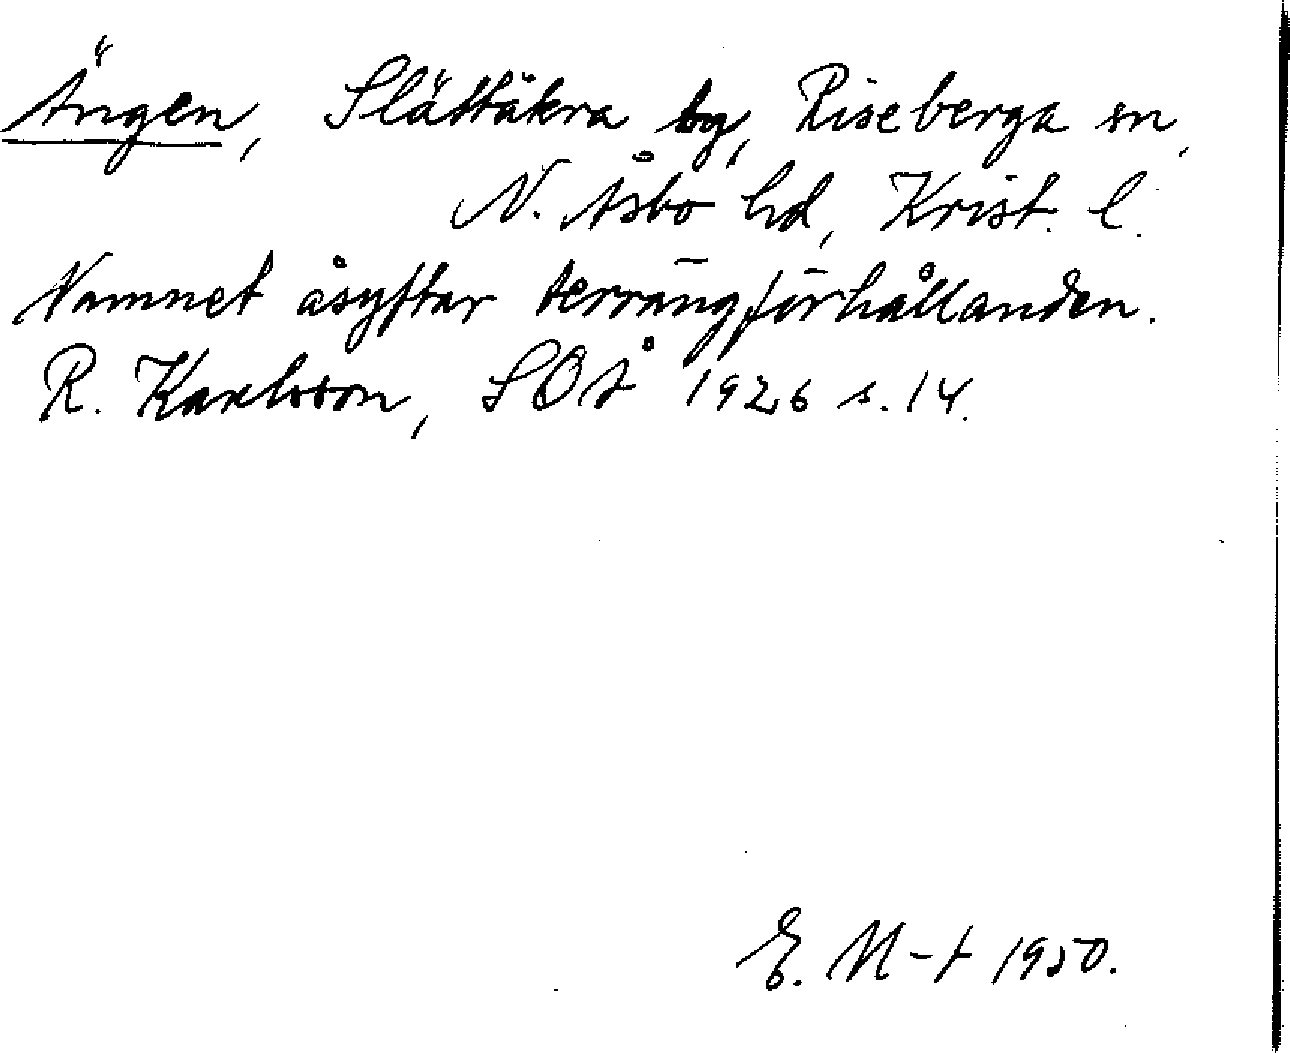 Ängen, Slättåkra by, Riseberga sn,
N. Åsbo hd, Krist. l.
Namnet åsyftar terrängförhållanden.
R. Karlsson, SOÅ 1926 s. 14.
E. M-t 1950.